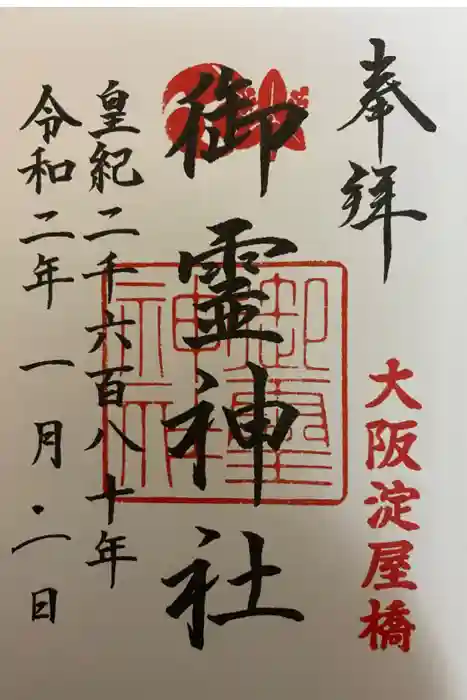 奉拝
大阪淀屋橋
御霊神社
御靈神社
皇紀二千六百八十年
令和二年一月二日